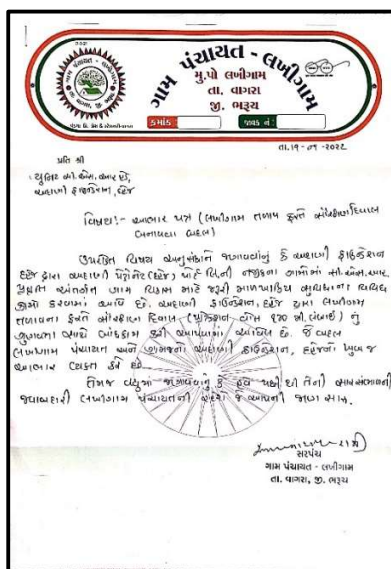 ગામ પંચાયત - લખીગામ
મુ.પો લખીગામ
તા. વાગરા
જી. ભરૂચ
ક્રમાંક
જાવક નં.
તા.૧૯-૦૧-૨૦૨૨
પ્રતિ શ્રી
યુનિટ સી.એસ.આર હેડ,
અદાણી ફાઉન્ડેશન, દહેજ
વિષય:- આભાર પત્ર (લખીગામ તળાવ ફરતે સંરક્ષણ દિવાલ
બનાવવા બદલ)
ઉપરોક્ત વિષય અનુસંધાને જણાવવાનું કે અદાણી ફાઉન્ડેશન
દહેજ દ્વારા અદાણી પેટ્રોનેટ (દહેજ) પોર્ટ લિ.ની નજીકના ગામોમાં સી.એસ.આર.
અંતર્ગત ગામ વિકાસ માટે જરૂરી માળખાકિય સુવિધાના વિવિધ
કામો કરવામાં આવે છે. અદાણી ફાઉન્ડેશન, દહેજ દ્વારા લખીગામ
તળાવના ફરતે સંરક્ષણ દિવાલ
ગુણવત્તા સાથે બાંધકામ કરી આપવામાં આવેલ છે. જે બદલ
લખીગામ પંચાયત અને ગ્રામજનો અદાણી ફાઉન્ડેશન, દહેજનો ખુબ જ
આભાર વ્યક્ત કરે છે.
વધુમાં જણાવવાનું કે હવે પછી થી તેની સારસંભાળની
જવાબદારી લખીગામ પંચાયતની રહેશે જે આપની જાણ સારૂ.
સરપંચ
ગામ પંચાયત - લખીગામ
તા. વાગરા, જી. ભરૂચ